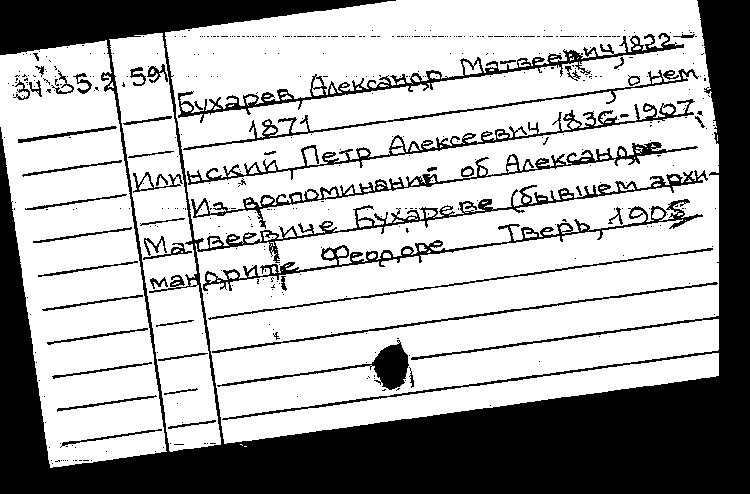 34.35.2.591
Бухарев, Александр Матвеевич, 1822-
1871, о нем
Илинский, Петр Алексеевич, 1836-1907.
Из воспоминаний об Александре
Матвеевиче Бухареве (бывшем архи-
мандрите Феодоре Тверь, 1905